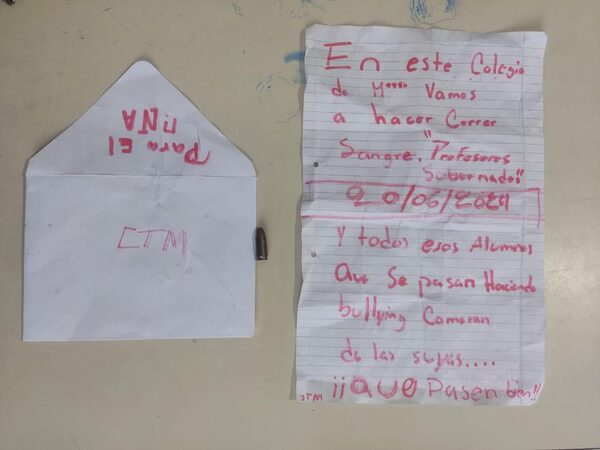 Para El
niñA
CTM
En este Colegio
de M°°°° Vamos
a hacer Correr
Sangre. "Profesores
Sobornados"
20/06/2024
Y todos esos Alumnos
Que Se pasan Haciendo
bullying Comeran
de las suyas....
¡¡QUE Pasen bien!!
CTM